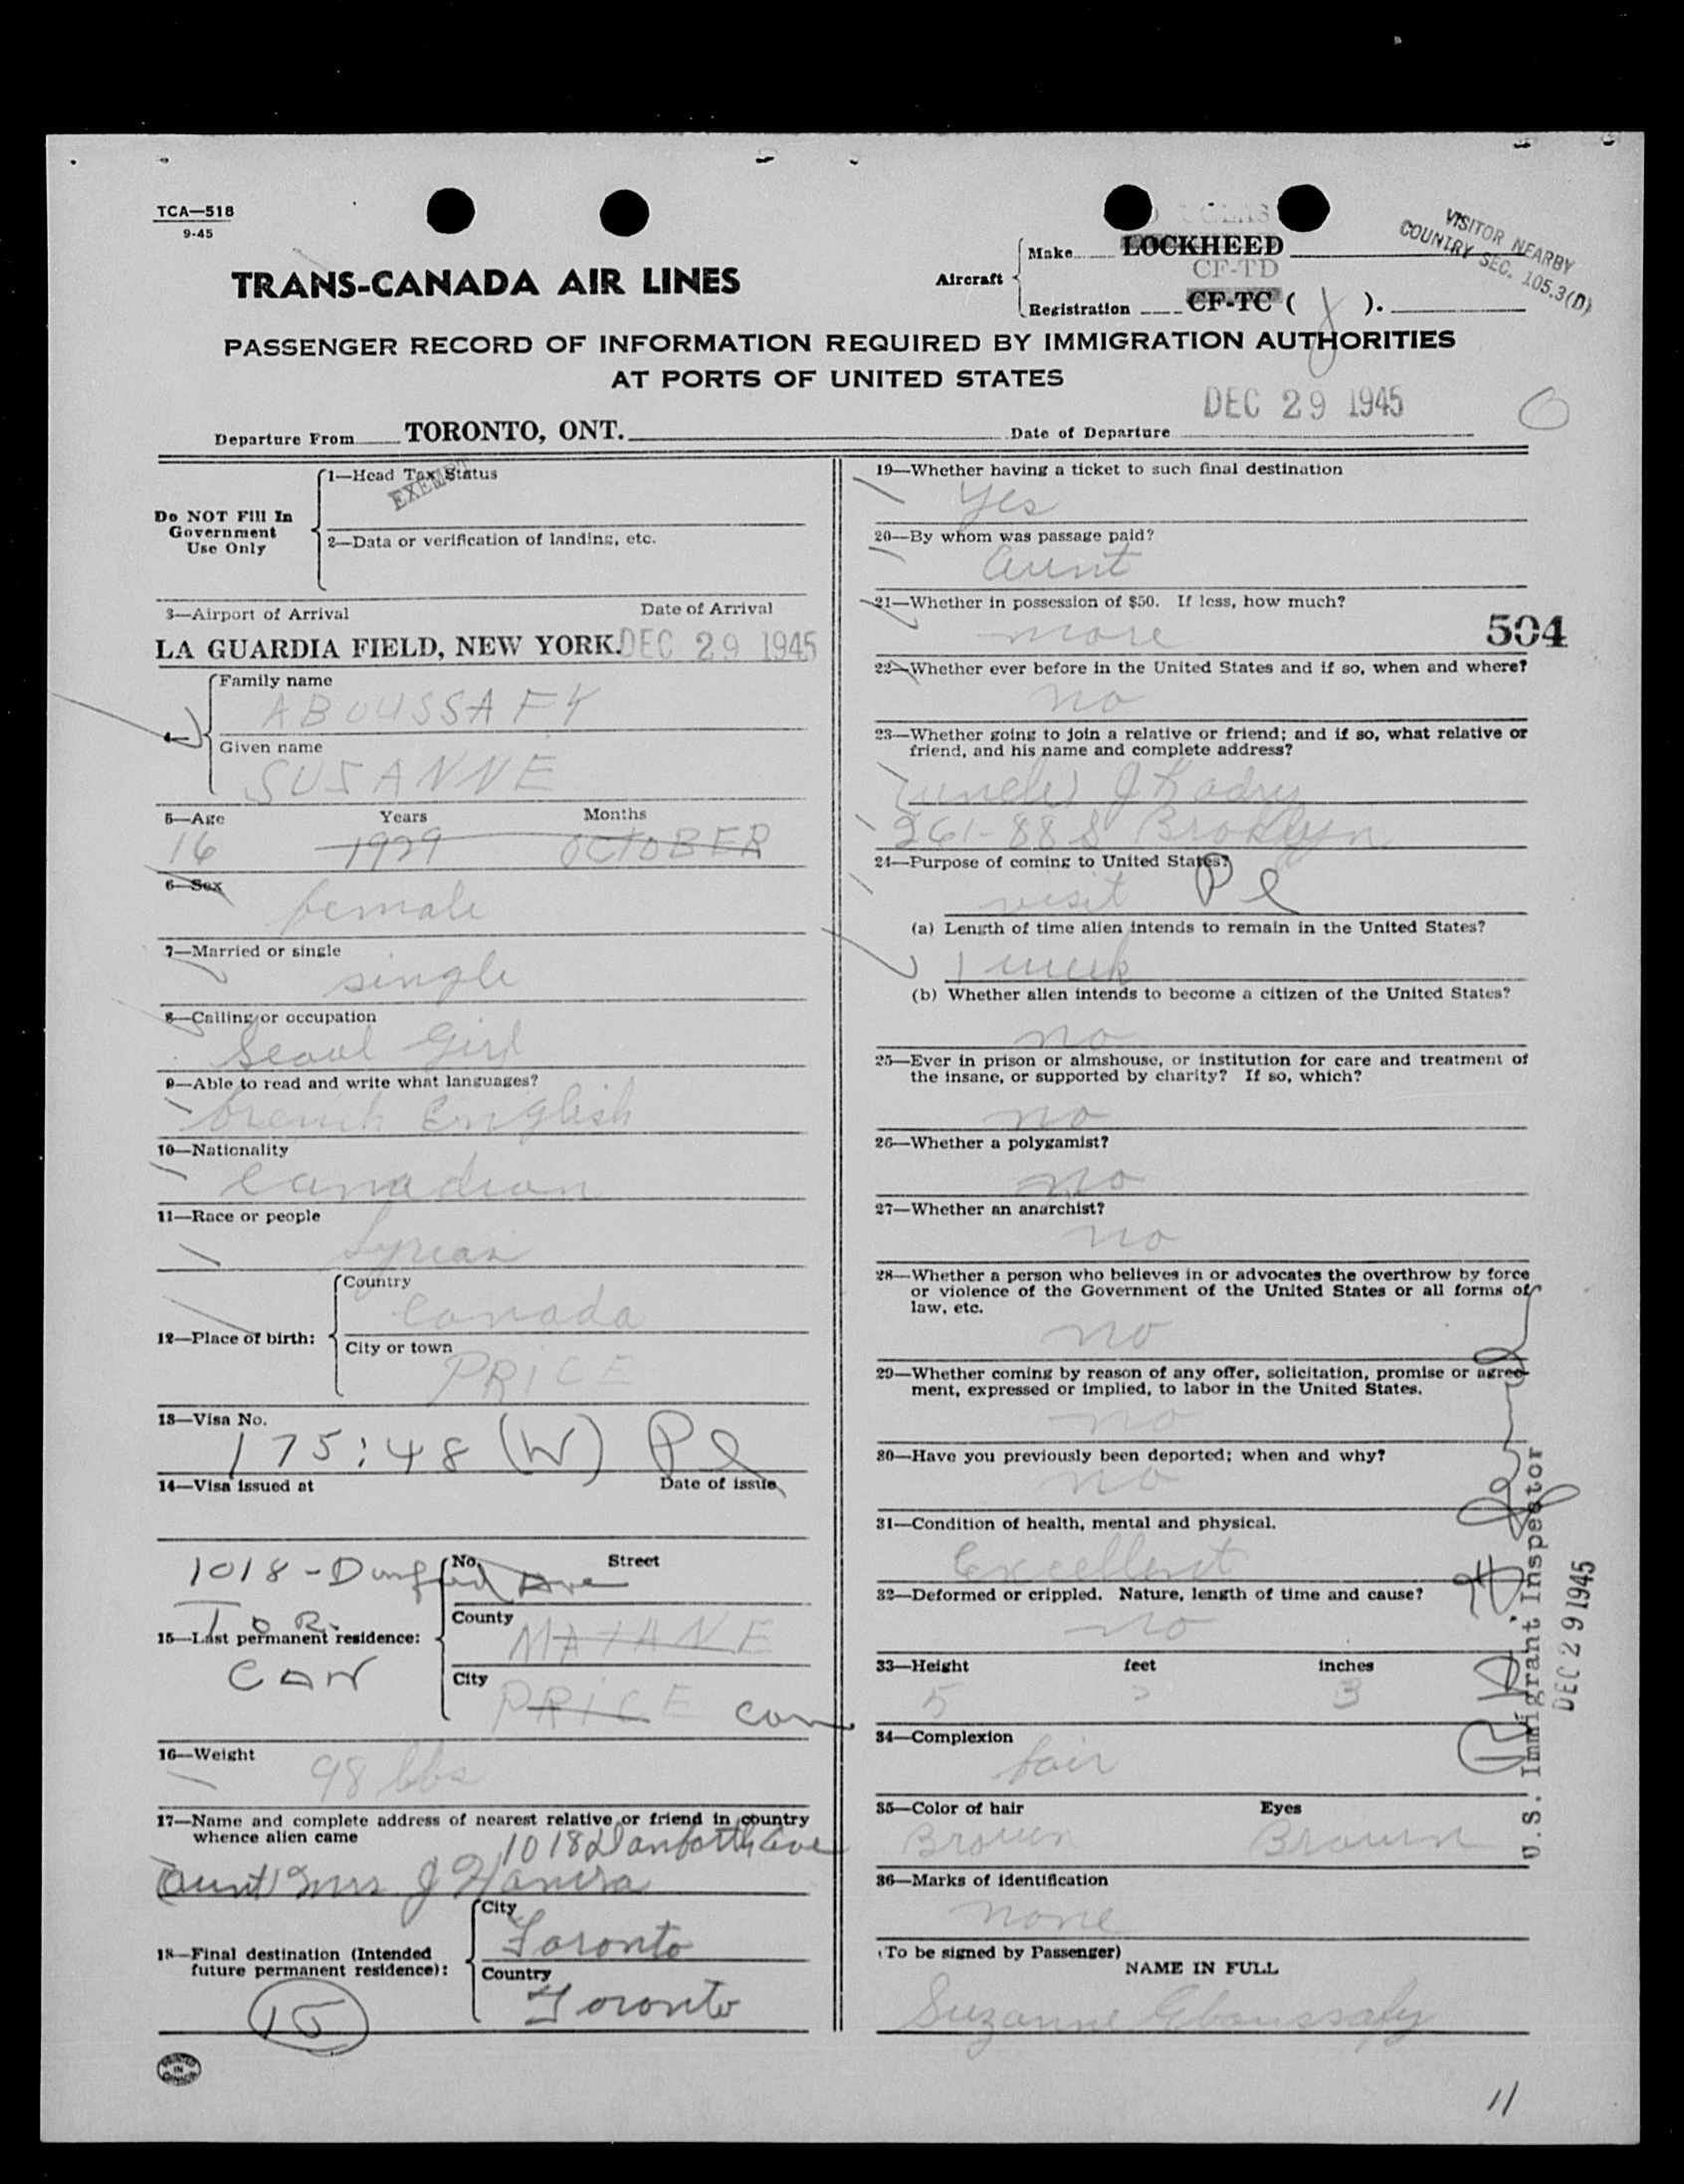 TCA—518
9-45
TRANS-CANADA AIR LINES
Aircraft
Make LOCKHEED
CF-TD
Registration CF-TC ( ).
VISITOR NEARBY
COUNTRY SEC. 105.3(D)
PASSENGER RECORD OF INFORMATION REQUIRED BY IMMIGRATION AUTHORITIES
AT PORTS OF UNITED STATES
Departure From TORONTO, ONT.
Date of Departure DEC 29 1945
Do NOT Fill In
Government
Use Only
1—Head Tax Status
EXEMPT
2—Data or verification of landing, etc.
3—Airport of Arrival Date of Arrival
LA GUARDIA FIELD, NEW YORK. DEC 29 1945
4—
Family name
ABOUSSAFY
Given name
SUSANNE
5—Age Years Months
16 1929 OCTOBER
6—Sex
female
7—Married or single
single
8—Calling or occupation
Scool Girl
9—Able to read and write what languages?
French English
10—Nationality
Canadian
11—Race or people
Syrian
12—Place of birth:
Country
Canada
City or town
PRICE
13—Visa No.
175:48 (W) Pl
14—Visa issued at Date of issue
1018 - Ave
No. Street
TOR.
15—Last permanent residence:
CAN
County
MATANE
City
PRICE Can
16—Weight
98 lbs
17—Name and complete address of nearest relative or friend in country
whence alien came
1018 Danforth Ave
Aunt Mrs J
18—Final destination (Intended
future permanent residence):
City
Toronto
Country
Toronto
15
PRINTED
IN
CANADA
19—Whether having a ticket to such final destination
Yes
20—By whom was passage paid?
Aunt
21—Whether in possession of $50. If less, how much?
more
504
22—Whether ever before in the United States and if so, when and where?
no
23—Whether going to join a relative or friend; and if so, what relative or
friend, and his name and complete address?
(uncle) J Kadry
261-88 S Broklyn
24—Purpose of coming to United States?
visit Pl
(a) Length of time alien intends to remain in the United States?
1 week
(b) Whether alien intends to become a citizen of the United States?
no
25—Ever in prison or almshouse, or institution for care and treatment of
the insane, or supported by charity? If so, which?
no
26—Whether a polygamist?
no
27—Whether an anarchist?
no
28—Whether a person who believes in or advocates the overthrow by force
or violence of the Government of the United States or all forms of
law, etc.
no
29—Whether coming by reason of any offer, solicitation, promise or agree-
ment, expressed or implied, to labor in the United States.
no
30—Have you previously been deported; when and why?
no
31—Condition of health, mental and physical.
Excellent
32—Deformed or crippled. Nature, length of time and cause?
no
33—Height feet inches
5 3
34—Complexion
fair
35—Color of hair Eyes
Brown Brown
36—Marks of identification
none
(To be signed by Passenger)
NAME IN FULL
Suzanne Eboussafy
U.S. Immigrant Inspector
DEC 29 1945
11